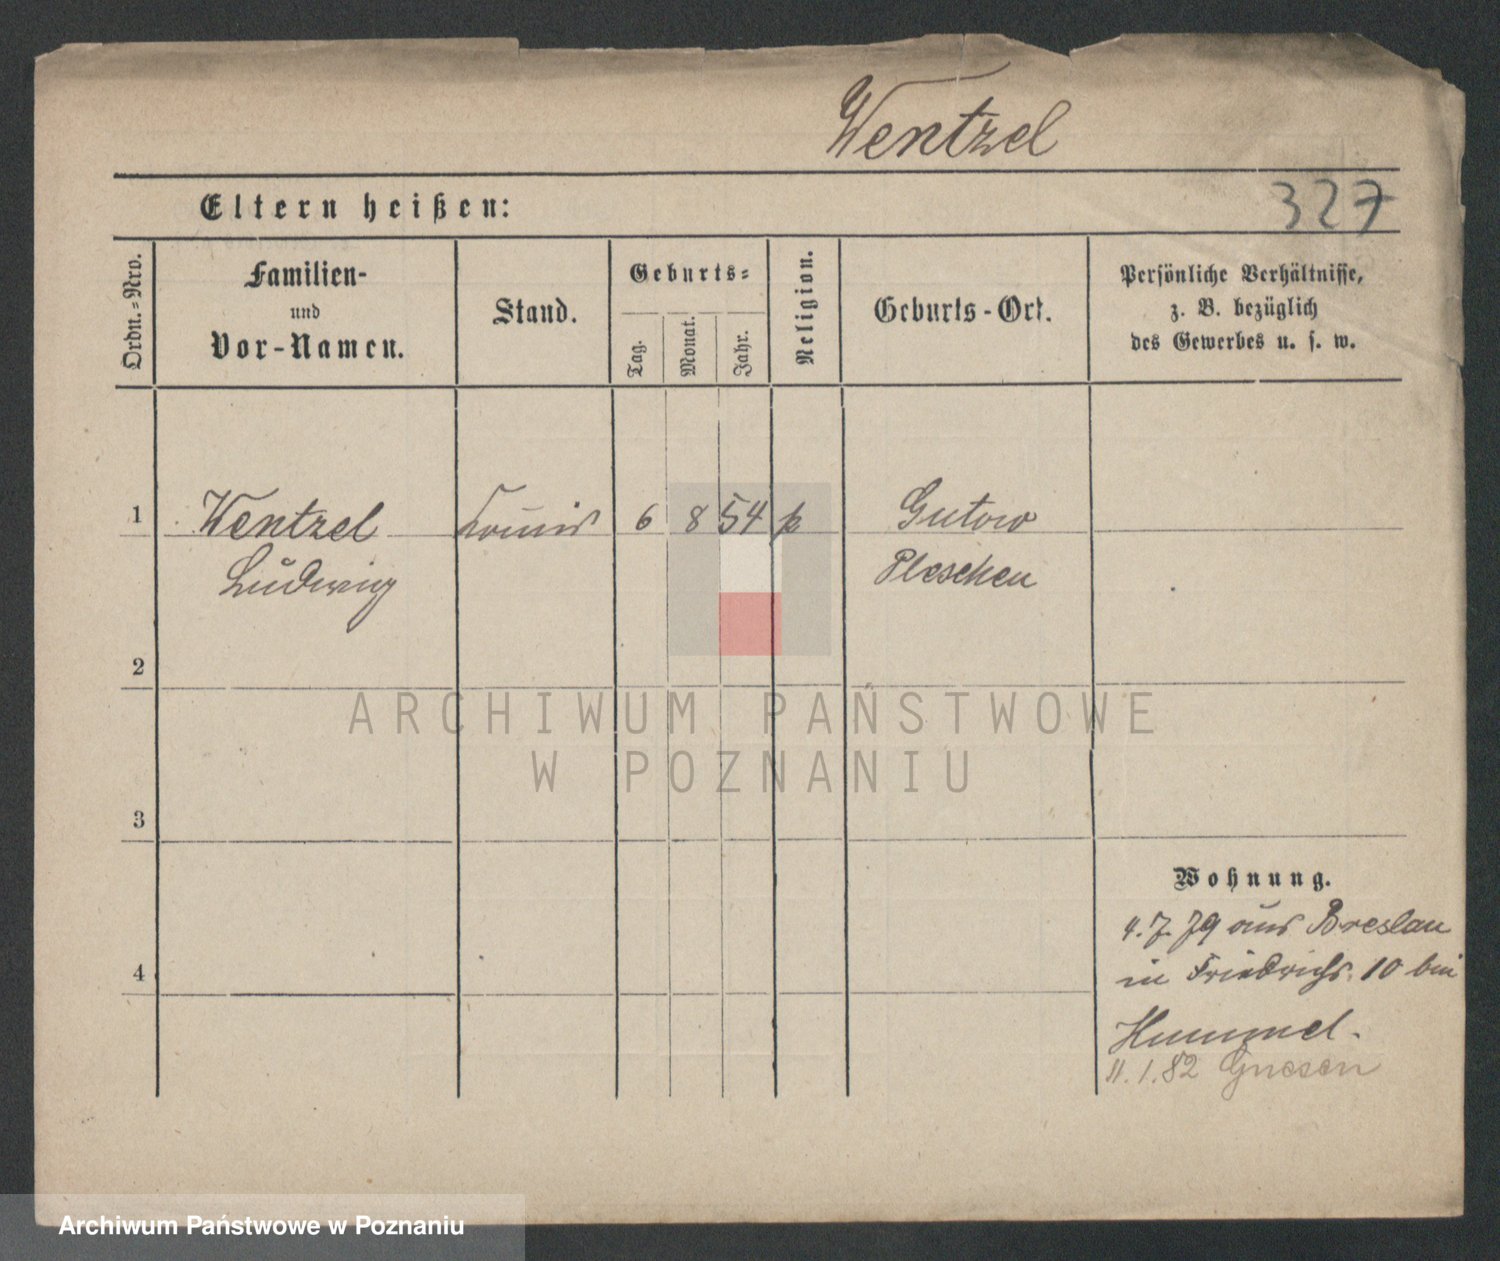 Wentzel
Eltern heißen:
327
Ordn.-Nro.
Familien-
und
Vor-Namen.
Stand.
Geburts-
Tag.
Monat.
Jahr.
Religion.
Geburts-Ort.
Persönliche Verhältnisse,
z. B. bezüglich
des Gewerbes u. s. w.
1 Wentzel Commis 6 8 54 k Gutow
Ludwig Pleschen
2
ARCHIWUM PAŃSTWOWE
W POZNANIU
3
Wohnung.
4. 7. 79 aus Breslau
4
in Friedrichs. 10 bei
Hummel.
11. 1. 82 Gnesen
Archiwum Państwowe w Poznaniu